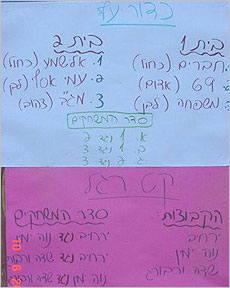 כדור עף
בית 1
חברים (כחול)
69 (אדום)
משפחה (לבן)
בית 2
1. אלישמע (כחול)
2. עמי אסף (לבן)
3. (צהוב)
סדר המשחקים
א. 1 נגד 2
ב. 1 נגד 3
ג. 2 נגד 3
קט רגל
הקבוצות
ירחיב
נוה ימין
שדה ורבורג
סדר המשחקים
ירחיב נגד נוה ימין
ירחיב נגד שדה ורבורג
נוה ימין נגד שדה ורבורג
10 6